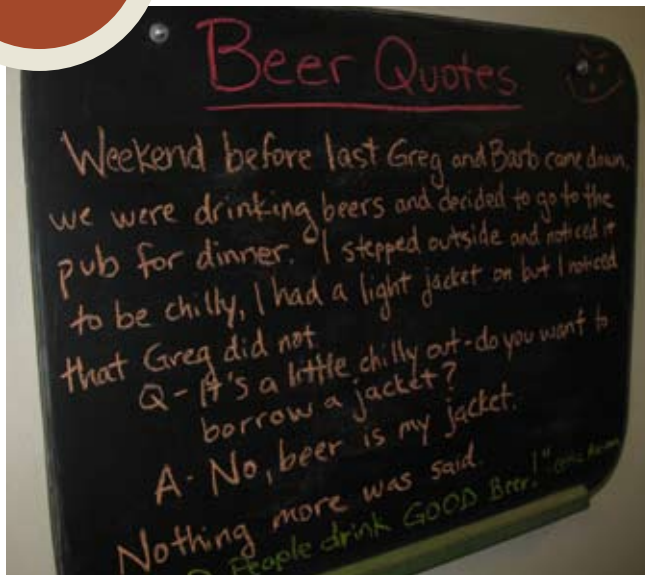 Beer Quotes
Weekend before last Greg and Barb came down,
we were drinking beers and decided to go to the
pub for dinner. "I stepped outside and noticed it
to be chilly, I had a light jacket on but I noticed
that Greg did not.
Q- It's a little chilly out-do you want to
borrow a jacket?
A- No, beer is my jacket.
Nothing more was said.
People drink GOOD Beer!"